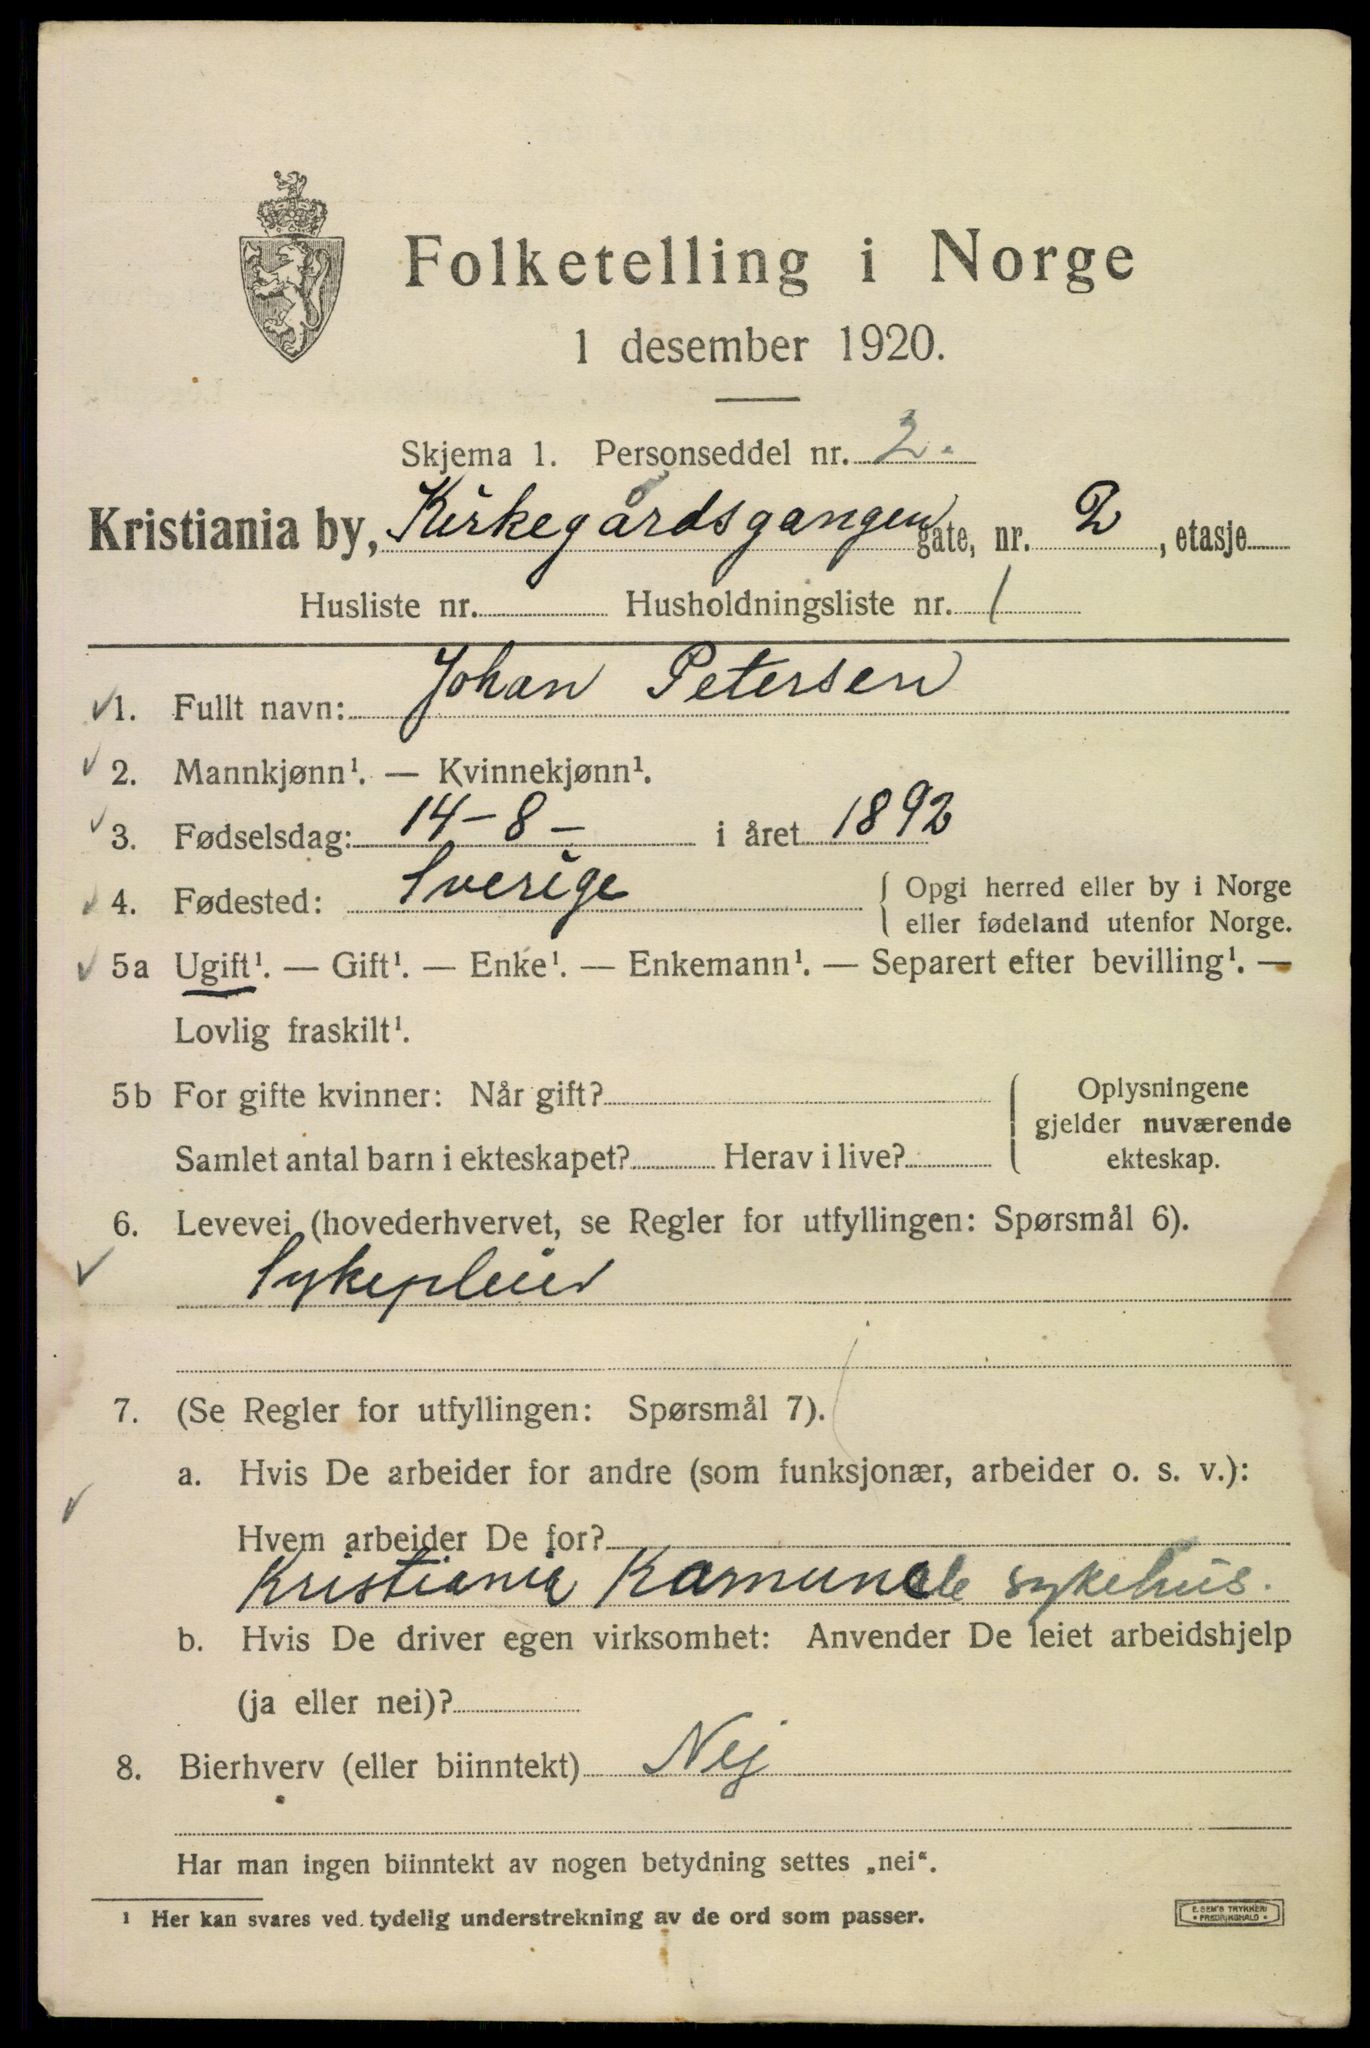 Folketelling i Norge
1 desember 1920.
Skjema 1. Personseddel nr. 2.
Kristiania by, Kirkegårdsgangen gate, nr. 2, etasje
Husliste nr. Husholdningsliste nr. 1
1. Fullt navn: Johan Petersen
2. Mannkjønn¹. — Kvinnekjønn¹.
3. Fødselsdag: 14-8- i året 1892
4. Fødested: Sverige { Opgi herred eller by i Norge
eller fødeland utenfor Norge.
5a Ugift¹. — Gift¹. — Enke¹. — Enkemann¹. — Separert efter bevilling¹. —
Lovlig fraskilt¹.
5b For gifte kvinner: Når gift? { Oplysningene
gjelder nuværende
Samlet antal barn i ekteskapet? Herav i live? ekteskap.
6. Levevei (hovederhvervet, se Regler for utfyllingen: Spørsmål 6).
Sykepleier
7. (Se Regler for utfyllingen: Spørsmål 7).
a. Hvis De arbeider for andre (som funksjonær, arbeider o. s. v.):
Hvem arbeider De for?
Kristiania Komunale sykehus.
b. Hvis De driver egen virksomhet: Anvender De leiet arbeidshjelp
(ja eller nei)?
8. Bierhverv (eller biinntekt) Nej
Har man ingen biinntekt av nogen betydning settes „nei“.
¹ Her kan svares ved tydelig understrekning av de ord som passer.
E. SEM'S TRYKKERI
• FREDRIKSHALD •